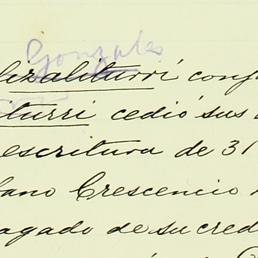 Gonzales
lizaliturri conf
iturri cedió sus
escritura de 31
fano Crescencio
pagado de su cred